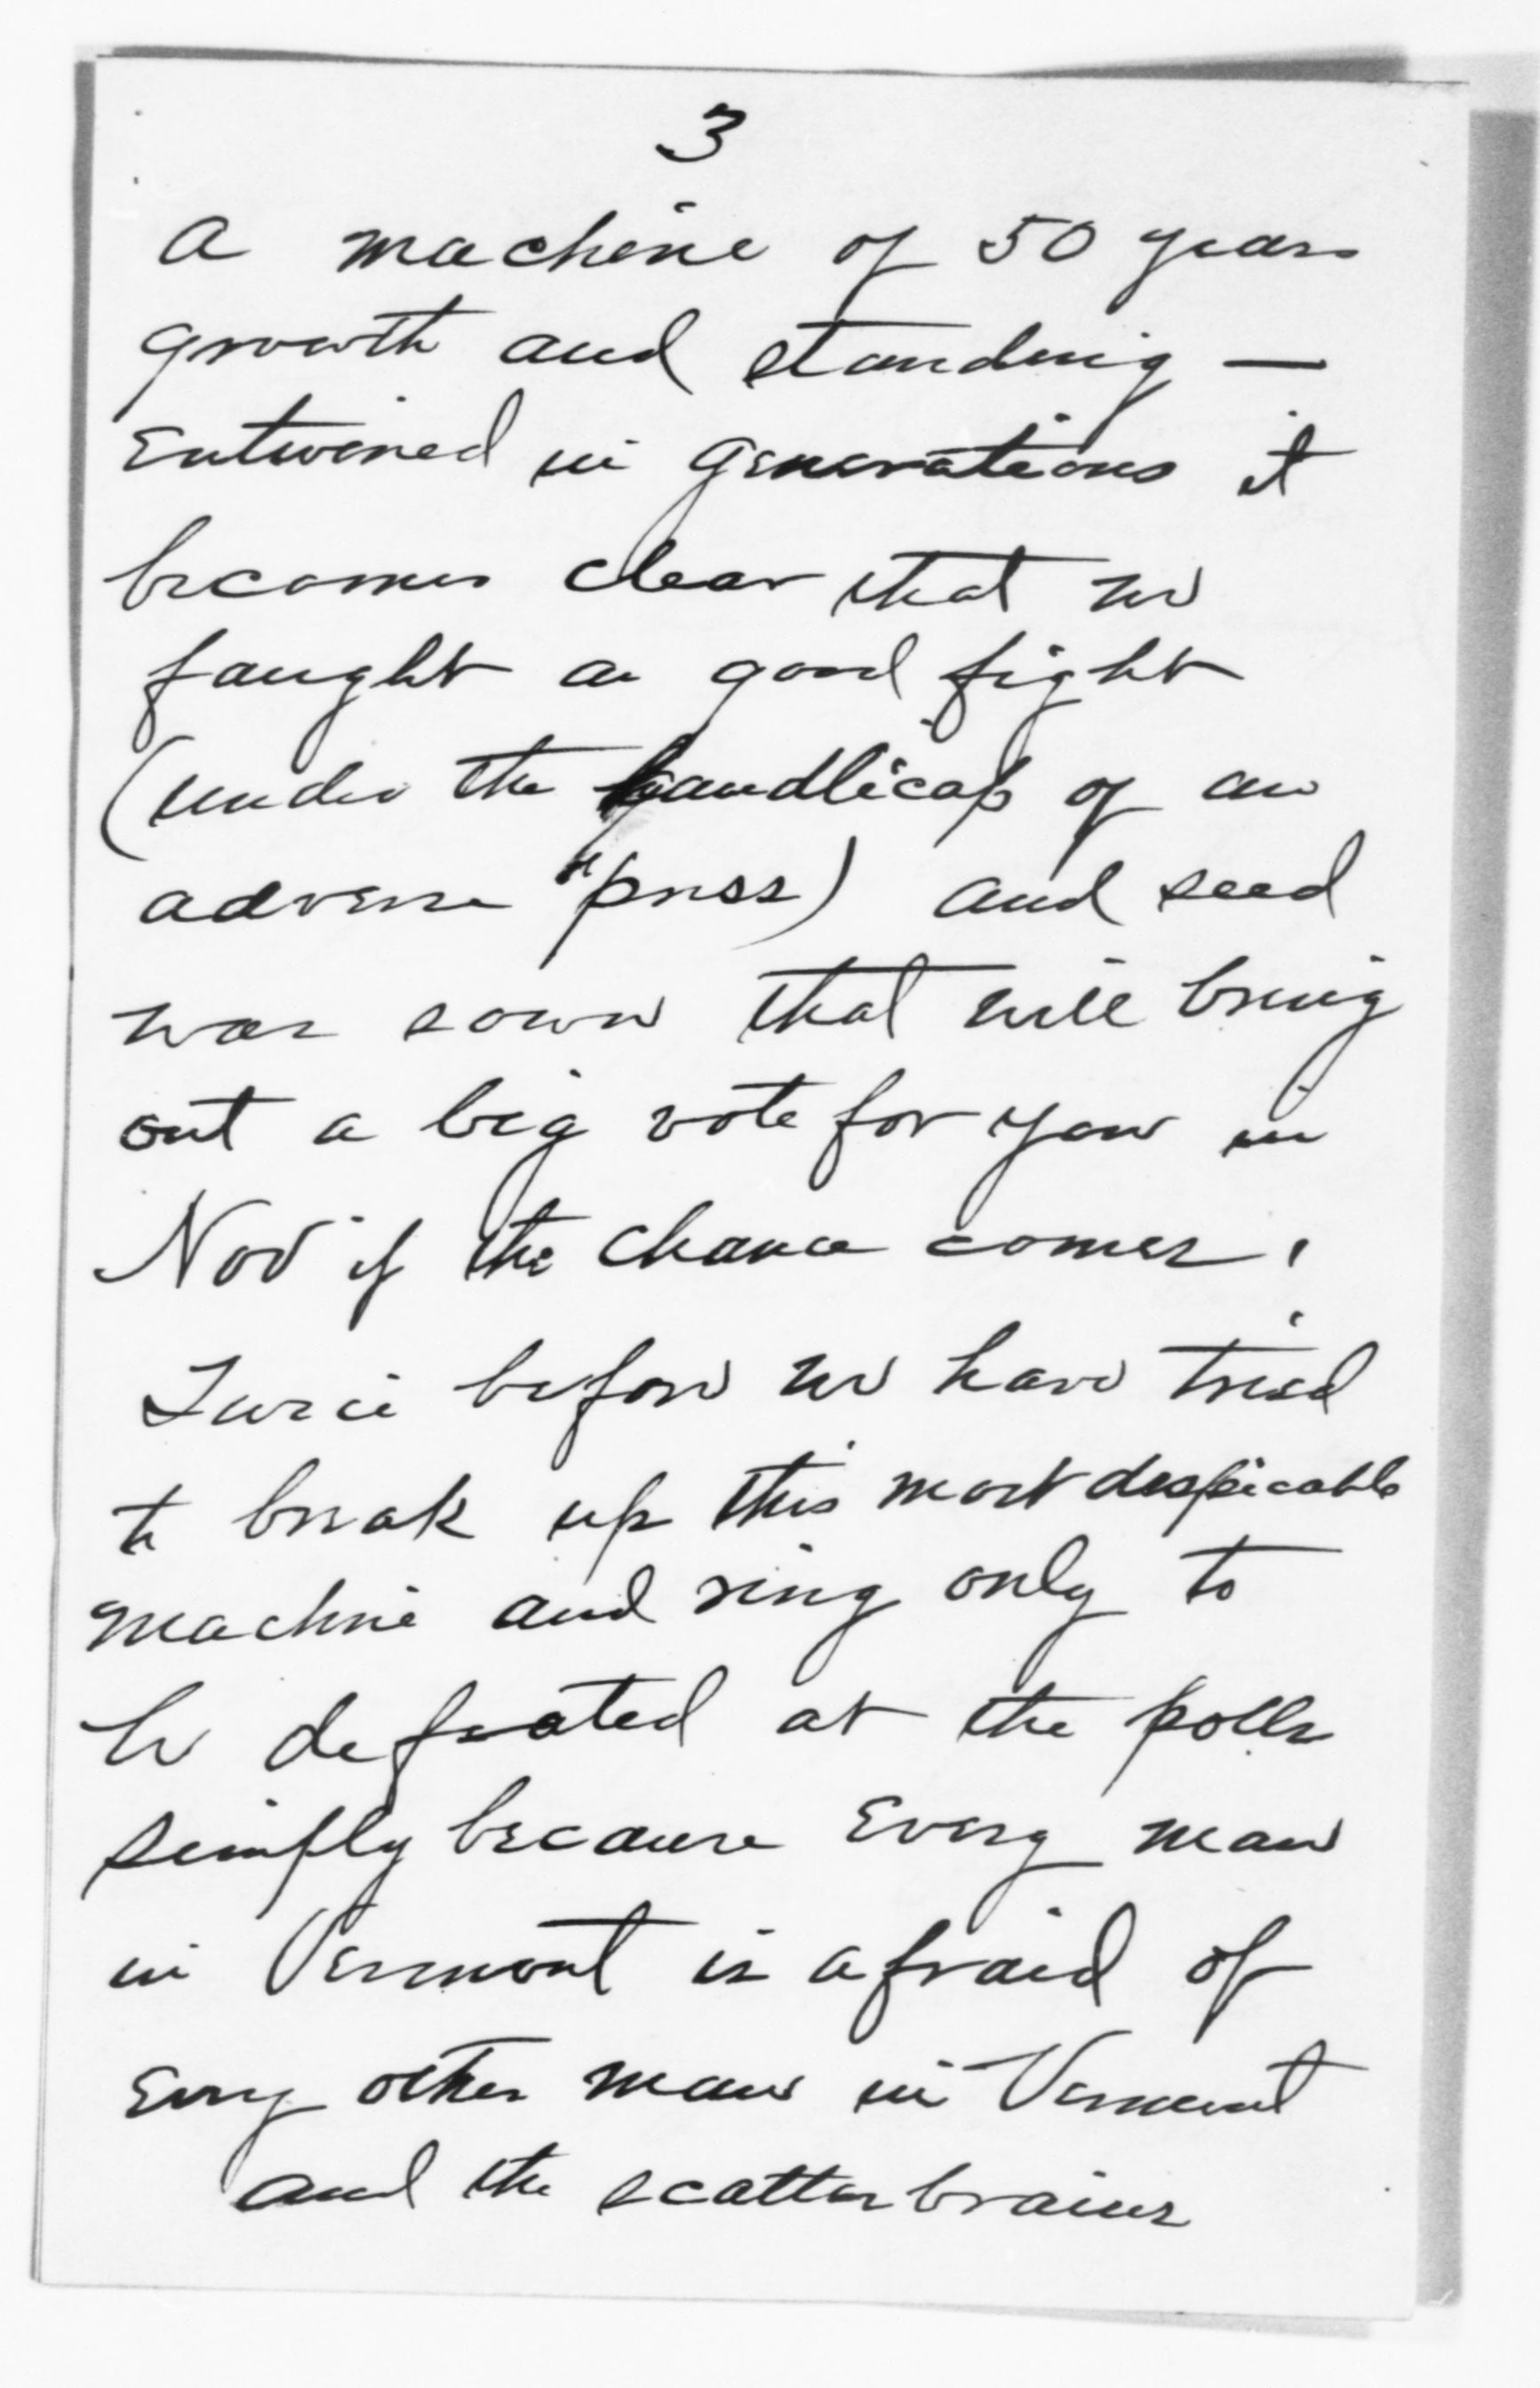 3
a machine of 50 years
growth and standing —
Entwined in generations it
becomes clear that we
faught a good fight
(under the handlicap of an
adverse "press) and seed
was sown that will bring
out a big vote for you in
Nov if the chance comes.
Twice before we have tried
to break up this most despicable
machine and ring only to
be defeated at the polls
simply because Every man
in Vermont is afraid of
Every other man in Vermont
and the scatterbrains